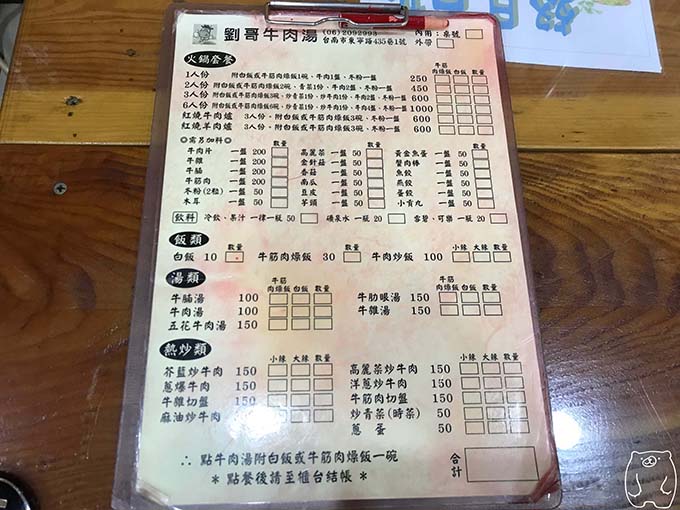 劉哥牛肉湯 (06)2092993 內用：桌號
台南市東寧路435巷1號 外帶
火鍋套餐 牛筋肉燥飯 白飯 數量
1人份 附白飯或牛筋肉燥飯1碗、牛肉1盤、冬粉一盤 250
2人份 附白飯或牛筋肉燥飯2碗、青菜1份、牛肉2盤、冬粉一盤 450
3人份 附白飯或牛筋肉燥飯3碗、炒青菜1份、炒牛肉1份、牛肉2盤、冬粉一盤 600
6人份 附白飯或牛筋肉燥飯6碗、炒青菜1份、炒牛肉1份、牛肉4盤、冬粉一盤 1000
紅燒牛肉爐 3人份、附白飯或牛筋肉燥飯3碗、冬粉一盤 600
紅燒羊肉爐 3人份、附白飯或牛筋肉燥飯3碗、冬粉一盤 600
◎需另加料◎ 數量 數量 數量
牛肉片 一盤 200 高麗菜 一盤 50 黃金魚蛋 一盤 50
牛雜 一盤 200 金針菇 一盤 50 蟹肉棒 一盤 50
牛腩 一盤 200 香菇 一盤 50 魚餃 一盤 50
牛筋肉 一盤 200 南瓜 一盤 50 燕餃 一盤 50
冬粉(2粒) 一盤 50 豆皮 一盤 50 蛋餃 一盤 50
木耳 一盤 50 芋頭 一盤 50 小貢丸 一盤 50
飲料 冷飲、果汁 一律一瓶 50 礦泉水 一瓶 20 雪碧、可樂 一瓶 20
飯類 數量 數量 小辣 大辣 數量
白飯 10 牛筋肉燥飯 30 牛肉炒飯 100
湯類 牛筋肉燥飯 白飯 數量 牛筋肉燥飯 白飯 數量
牛腩湯 100 牛肋眼湯 150
牛肉湯 100 牛雜湯 150
五花牛肉湯 150
熱炒類 小辣 大辣 數量 小辣 大辣 數量
芥藍炒牛肉 150 高麗菜炒牛肉 150
蔥爆牛肉 150 洋蔥炒牛肉 150
牛雜切盤 150 牛筋肉切盤 150
麻油炒牛肉 150 炒青菜(時菜) 50
蔥蛋 50
∴ 點牛肉湯附白飯或牛筋肉燥飯一碗 合計
* 點餐後請至櫃台結帳 *